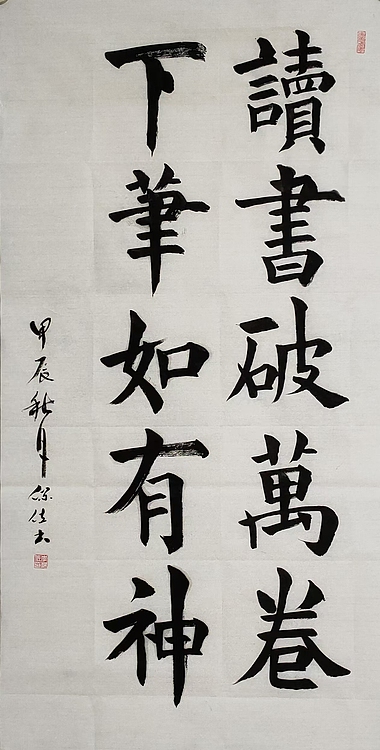 讀書破萬卷
下筆如有神
甲辰秋月